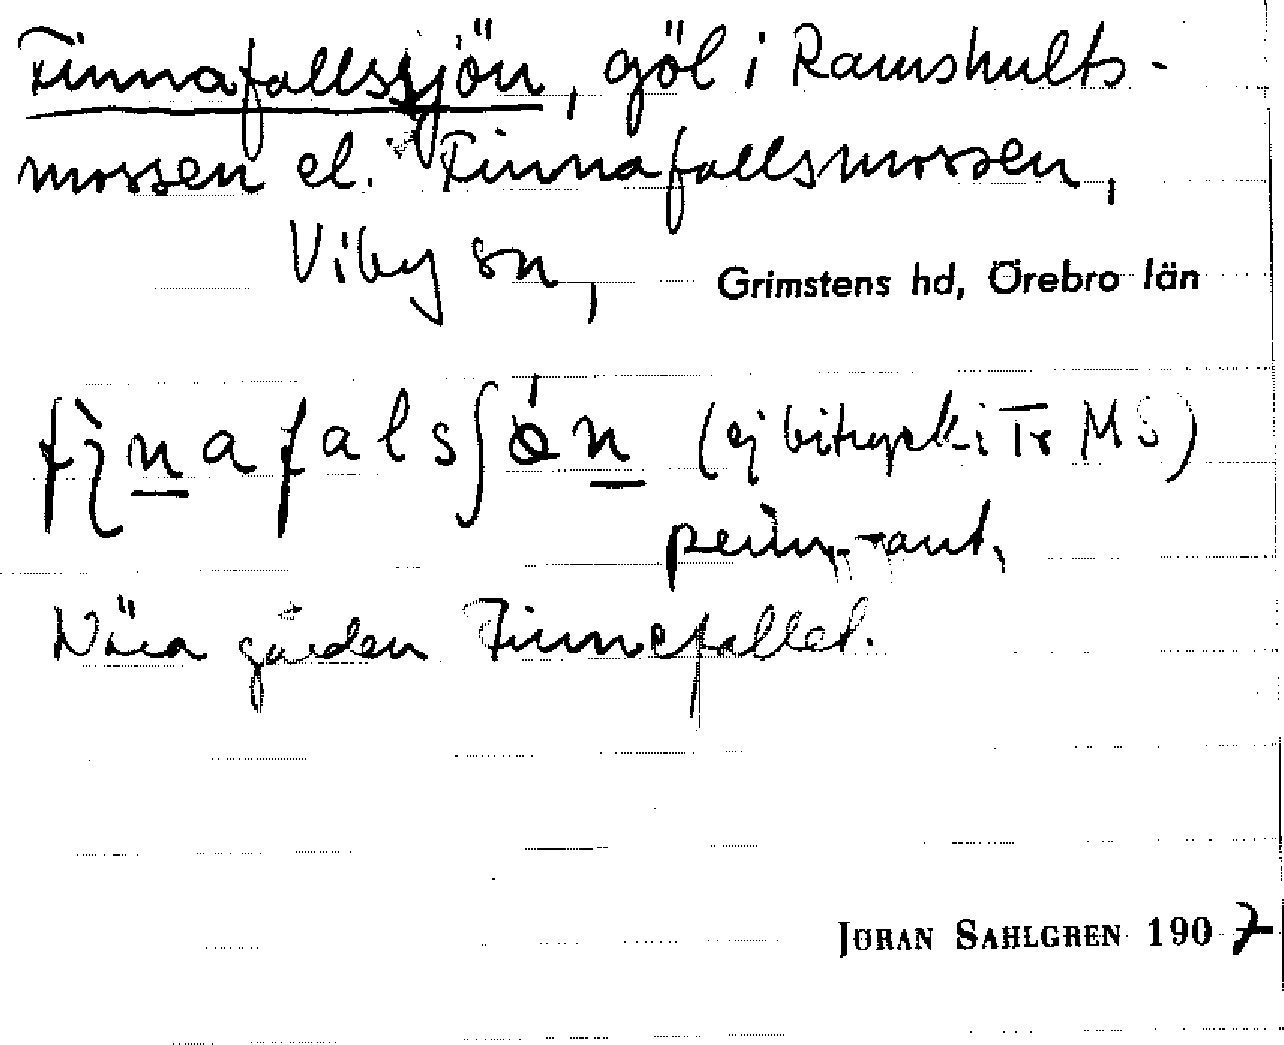 Finnafallssjön, göl i Ramshults-
mossen el. Finnafallsmossen,
Viby sn,
Grimstens hd, Örebro län
fìnafalsʃǿn (ej bitryck i Tr MS)
penn.-ant.
Nära gården Finnefallet.
JÖRAN SAHLGREN 1907